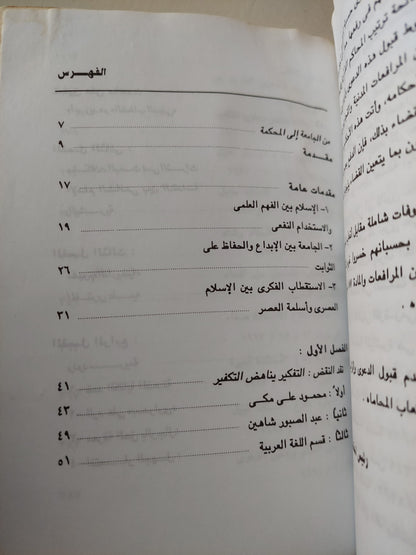 الفهرس
من الجامعة إلى المحكمة ٧
مقدمة ٩
مقدمات عامة ١٧
١- الإسلام بين الفهم العلمى
والاستخدام النفعى ١٩
٢- الجامعة بين الإبداع والحفاظ على
الثوابت ٢٦
٣- الاستقطاب الفكرى بين الإسلام
العصرى وأسلمة العصر ٣١
الفصل الأول :
نقد النقض : التفكير يناهض التكفير ٤١
أولاً : محمود على مكى ٤٣
ثانياً : عبد الصبور شاهين ٤٩
ثالثاً : قسم اللغة العربية ٥١
قبول هذه
المرافعات المدنية
وأتت هذه
بذلك، فإن
بما يتعين
شاملة مقابل
بحسبانهم خسروا
المرافعات والمادة
قبول الدعوى
المحاماه .
رئيس